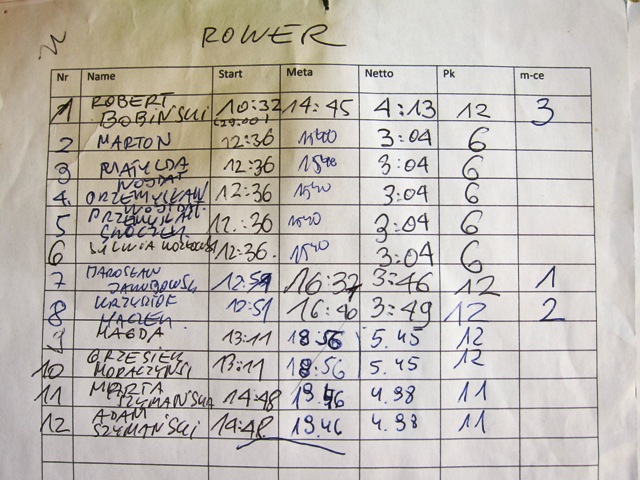 ROWER
Nr Name Start Meta Netto Pk m-ce
1 ROBERT BOBIŃSKI 10:32 14:45 4:13 12 3
2 MARTON 12:36 15:40 3:04 6
3 MATYLDA 12:36 15:40 3:04 6
4. 12:36 15:40 3:04 6
5 12:36 15:40 3:04 6
6 12:36 15:40 3:04 6
7 JAROSŁAW 16:37 3:46 12 1
8 MACIEK 16:40 3:49 12 2
9 MAGDA 13:11 18:56 5.45 12
10 GRZESIEK 13:11 18:56 5.45 12
11 MARTA SZYMAŃSKA 14:48 19.46 4.98 11
12 ADAM SZYMAŃSKI 14:48 19.46 4.98 11